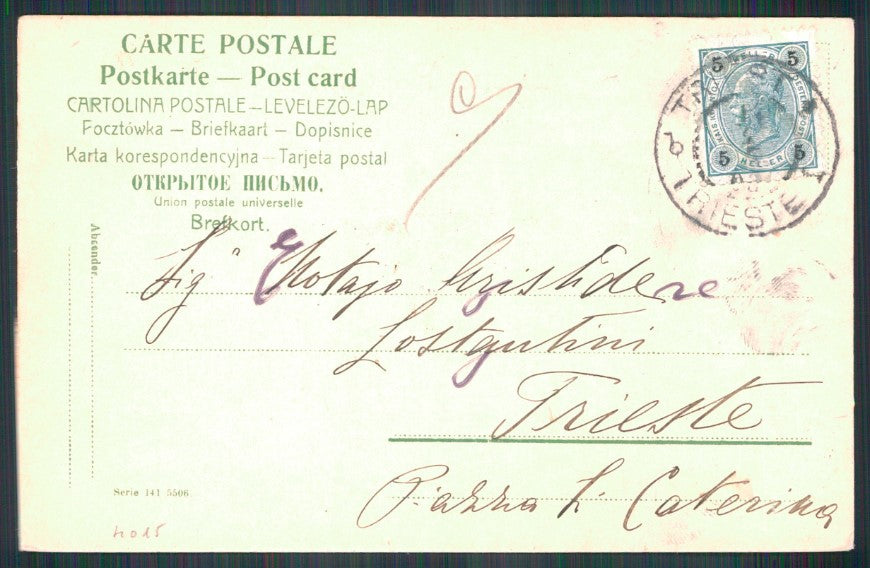 CARTE POSTALE
Postkarte — Post card
CARTOLINA POSTALE — LEVELEZÖ-LAP
Focztówka — Briefkaart — Dopisnice
Karta korespondencyjna — Tarjeta postal
ОТКРЫТОЕ ПИСЬМО.
Union postale universelle
Brefkort.
Absender.
5 5
HELLER
5 5
HELLER
TRIESTE
Sig
Trieste
Piazza S. Caterina
Serie 141 5506